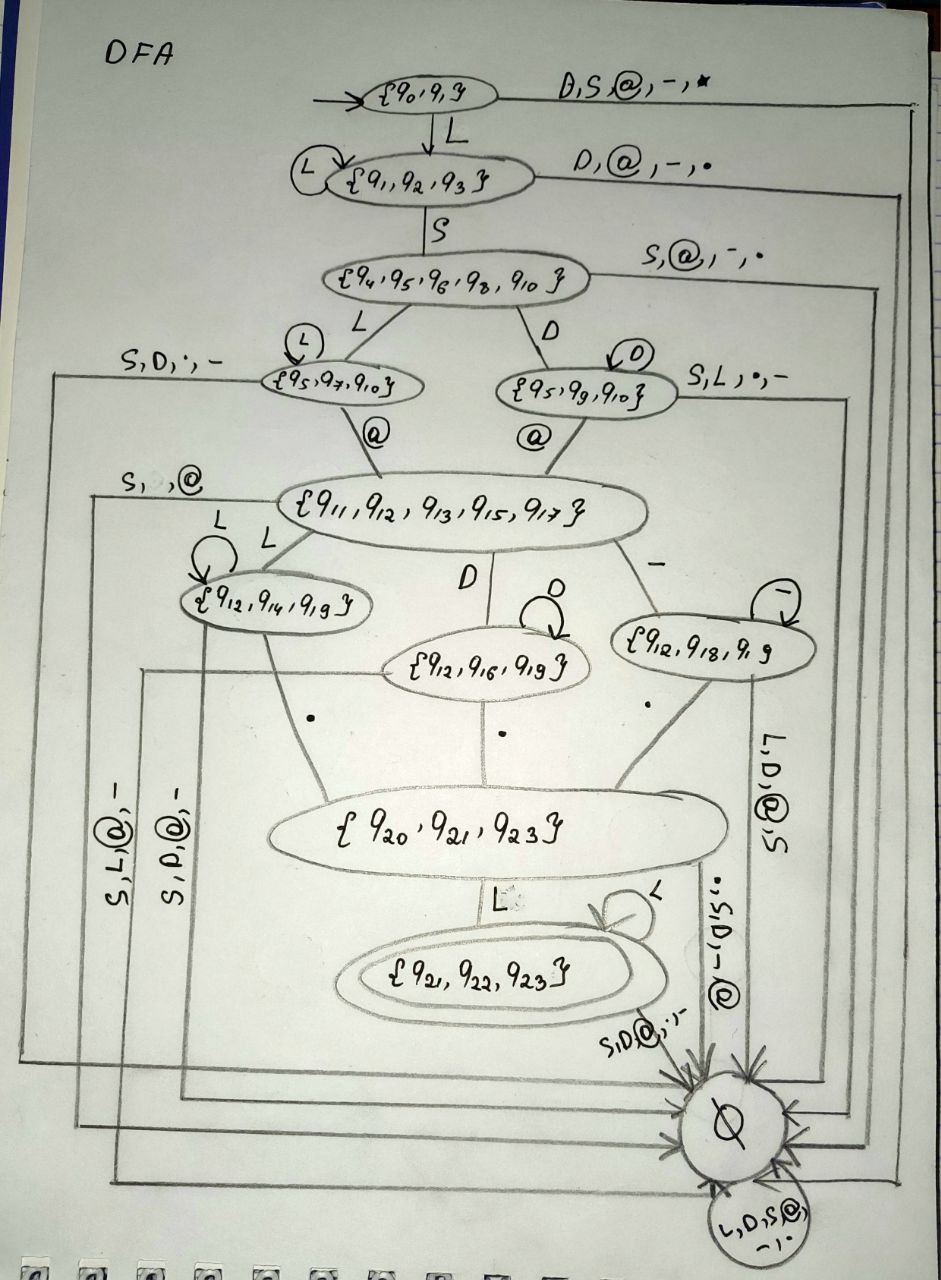 DFA
{q0,q1}
D,S,@,-,.
L
L
{q1,q2,q3}
D,@,-,.
S
{q4,q5,q6,q8,q10}
S,@,-,.
L
D
S,D,.,-
L
{q5,q7,q10}
D
{q5,q9,q10}
S,L,.,-
@
@
S, ,@
{q11,q12,q13,q15,q17}
L
L
D
-
{q12,q14,q19}
D
{q12,q16,q19}
-
{q12,q18,q19
.
.
.
S,L,@,-
S,D,@,-
L,D,@,S
{q20,q21,q23}
L
L
.,S,D,-,@
{q21,q22,q23}
S,D,@,.,-
Ø
L,D,S,@,
-,.